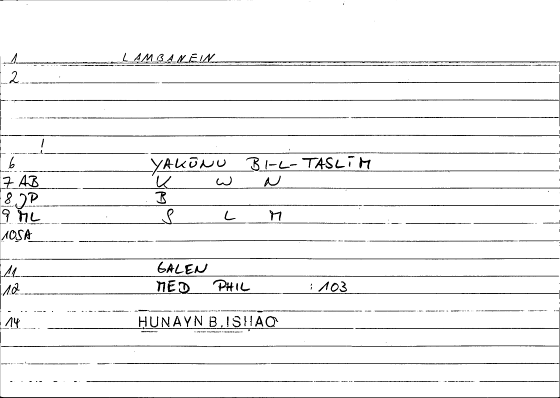 1 LAMBANEIN
2
!
6 YAKŪNU BI-L-TASLĪM
7 AB K W N
8 JP B
9 ML S L M
10 SA
11 GALEN
12 MED PHIL : 103
14 HUNAYN B. ISḤĀQ